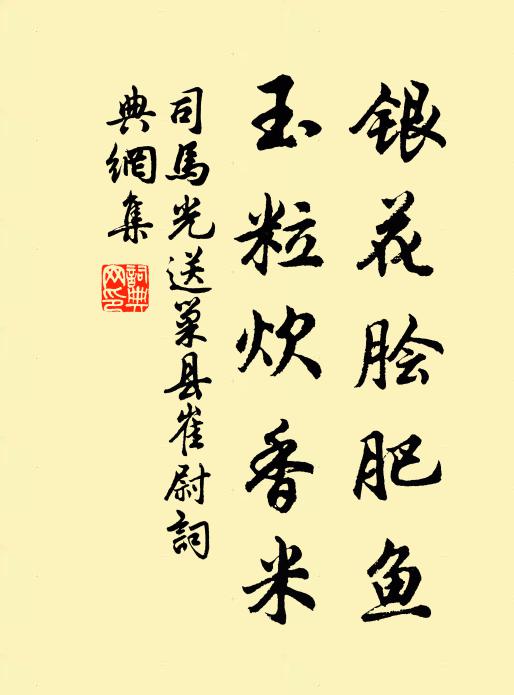 银花脍肥鱼
玉粒炊香米
司馬光送巢县崔尉詞
典網集
詞典网印